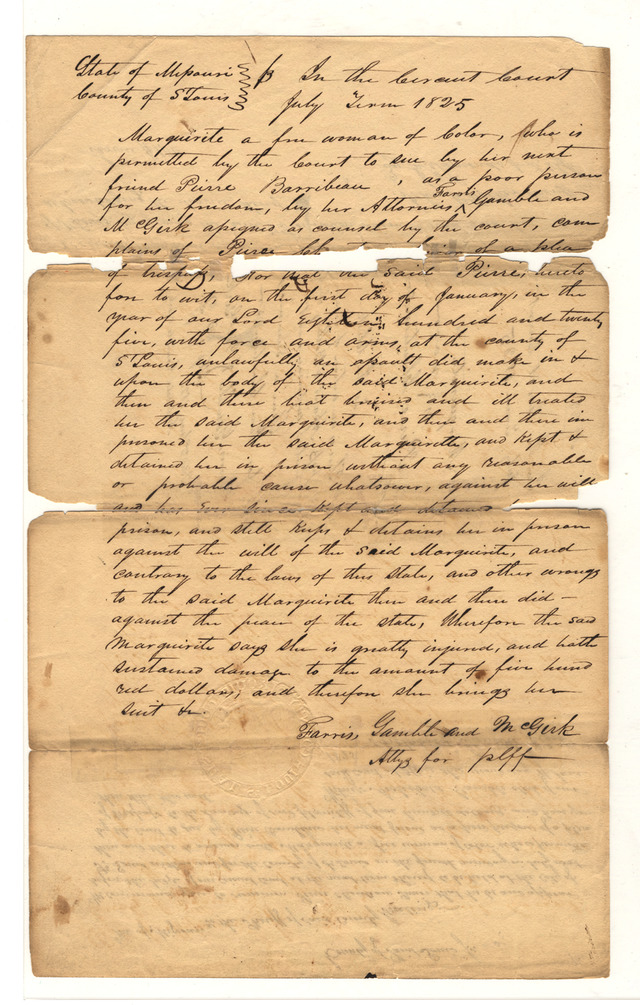 State of Missouri } ss In the Circuit Court
County of St Louis } July Term 1825
Marguirite a free woman of Color, who is
permitted by the Court to sue by her next
friend Pierre Barribeau, as a poor person
for her freedom, by her Attornies Farris Gamble and
McGirk assigned as counsel by the court, com
plains of Pierre of a plea
of trespass, For that the said Pierre, hereto
fore to wit, on the first day of January, in the
year of our Lord Eighteen hundred and twenty
five, with force and arms, at the county of
St Louis, unlawfully an assault did make in &
upon the body of the said Marguirite, and
then and there beat bruised and ill treated
her the said Marguirite, and then and there im
prisoned her the said Marguirette, and Kept &
detained her in prison without any reasonable
or probable cause whatsoever, against her will
and has ever since Kept and detained
prison, and still Keeps & detains her in prison
against the will of the said Marguirite, and
contrary to the laws of this state, and other wrongs
to the said Marguirite then and there did –
against the peace of the state, Wherefore the said
Marguirite says she is greatly injured, and hath
sustained damage to the amount of five hund
red dollars, and therefore she brings her
suit &c.
Farris, Gamble and McGirk
Attys for plff